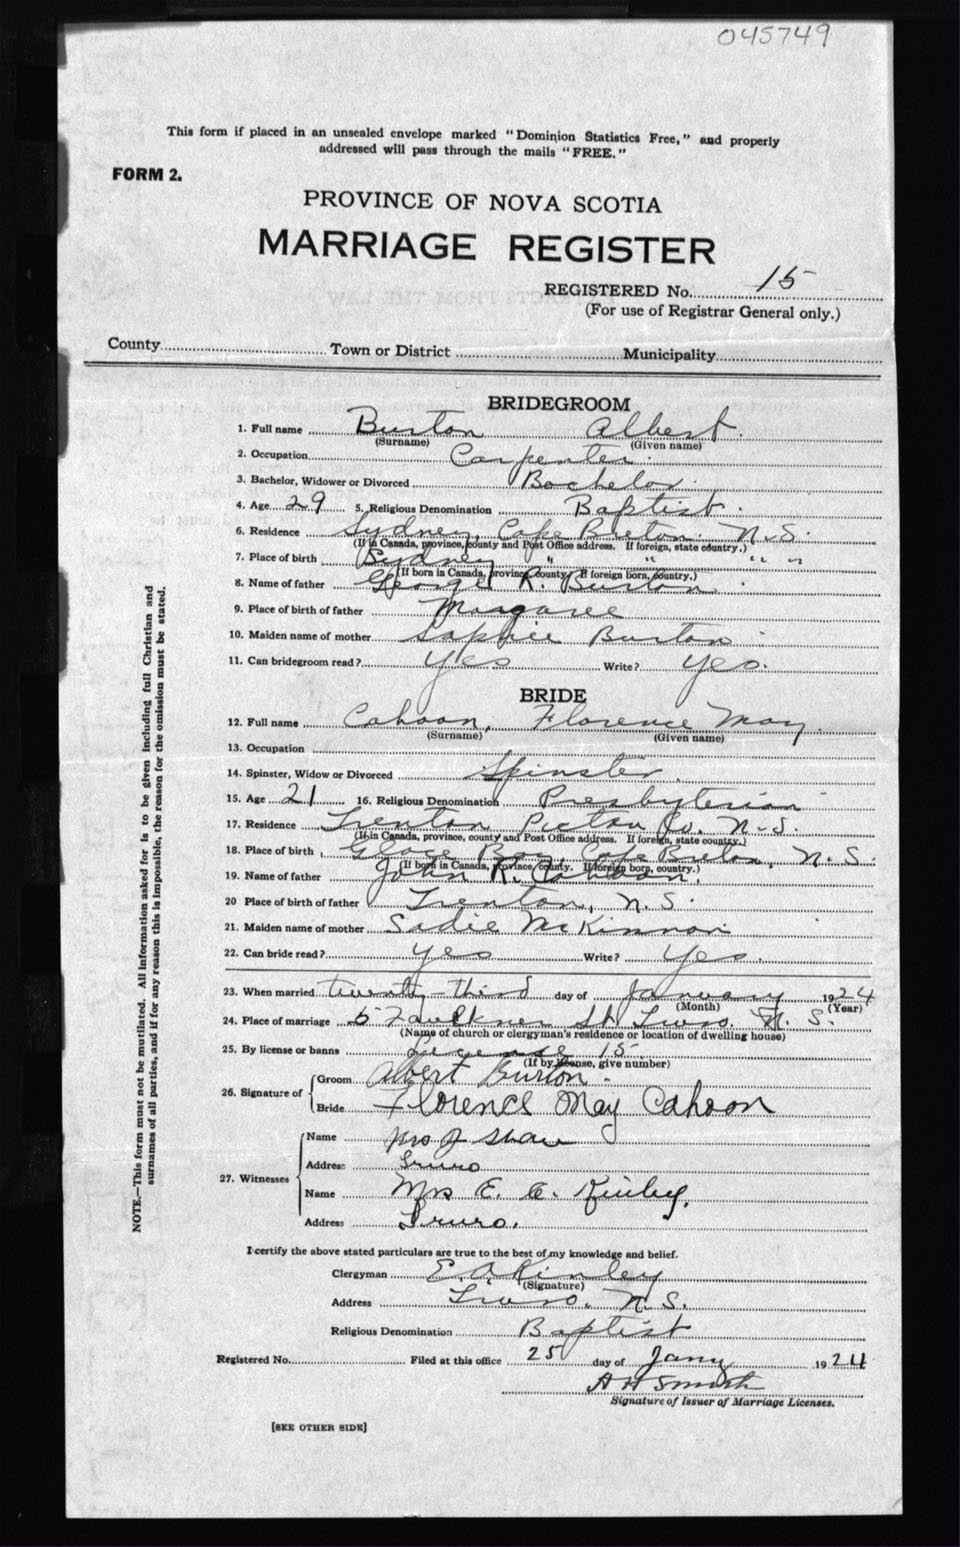 045749
This form if placed in an unsealed envelope marked "Dominion Statistics Free," and properly
addressed will pass through the mails "FREE."
FORM 2.
PROVINCE OF NOVA SCOTIA
MARRIAGE REGISTER
REGISTERED No. 15
(For use of Registrar General only.)
County Town or District Municipality
BRIDEGROOM
1. Full name Burton Albert.
(Surname) (Given name)
2. Occupation Carpenter.
3. Bachelor, Widower or Divorced Bachelor.
4. Age 29 5. Religious Denomination Baptist.
6. Residence Sydney, Cape Breton. N.S.
(If in Canada, province, county and Post Office address. If foreign, state country.)
7. Place of birth Sydney " " " "
(If born in Canada, province, county. If foreign born, country.)
8. Name of father George R. Burton.
9. Place of birth of father Margaree
10. Maiden name of mother Sophie Burton
11. Can bridegroom read? Yes Write? Yes.
BRIDE
12. Full name Cahoon, Florence May.
(Surname) (Given name)
13. Occupation
14. Spinster, Widow or Divorced Spinster.
15. Age 21 16. Religious Denomination Presbyterian
17. Residence Trenton Pictou Co. N.S.
(If in Canada, province, county and Post Office address. If foreign, state country.)
18. Place of birth Glace Bay Cape Breton, N.S.
(If born in Canada, province, county. If foreign born, country.)
19. Name of father John R. Cahoon,
20 Place of birth of father Trenton, N.S.
21. Maiden name of mother Sadie McKinnon
22. Can bride read? Yes Write? Yes.
23. When married twenty-third day of January 1924
(Month) (Year)
24. Place of marriage 5 Faulkner St. Truro, N.S.
(Name of church or clergyman's residence or location of dwelling house)
25. By license or banns License 15
(If by license, give number)
26. Signature of Groom Albert Burton.
Bride Florence May Cahoon
27. Witnesses
Name Shaw
Address Truro
Name Mrs E. C. Kinley,
Address Truro.
I certify the above stated particulars are true to the best of my knowledge and belief.
Clergyman E. A Kinley
(Signature)
Address Truro. N.S.
Religious Denomination Baptist
Registered No. Filed at this office 25 day of Jany 1924
A H Smith
Signature of Issuer of Marriage Licenses.
[SEE OTHER SIDE]
NOTE.—This form must not be mutilated. All information asked for is to be given including full Christian and
surnames of all parties, and if for any reason this is impossible, the reason for the omission must be stated.